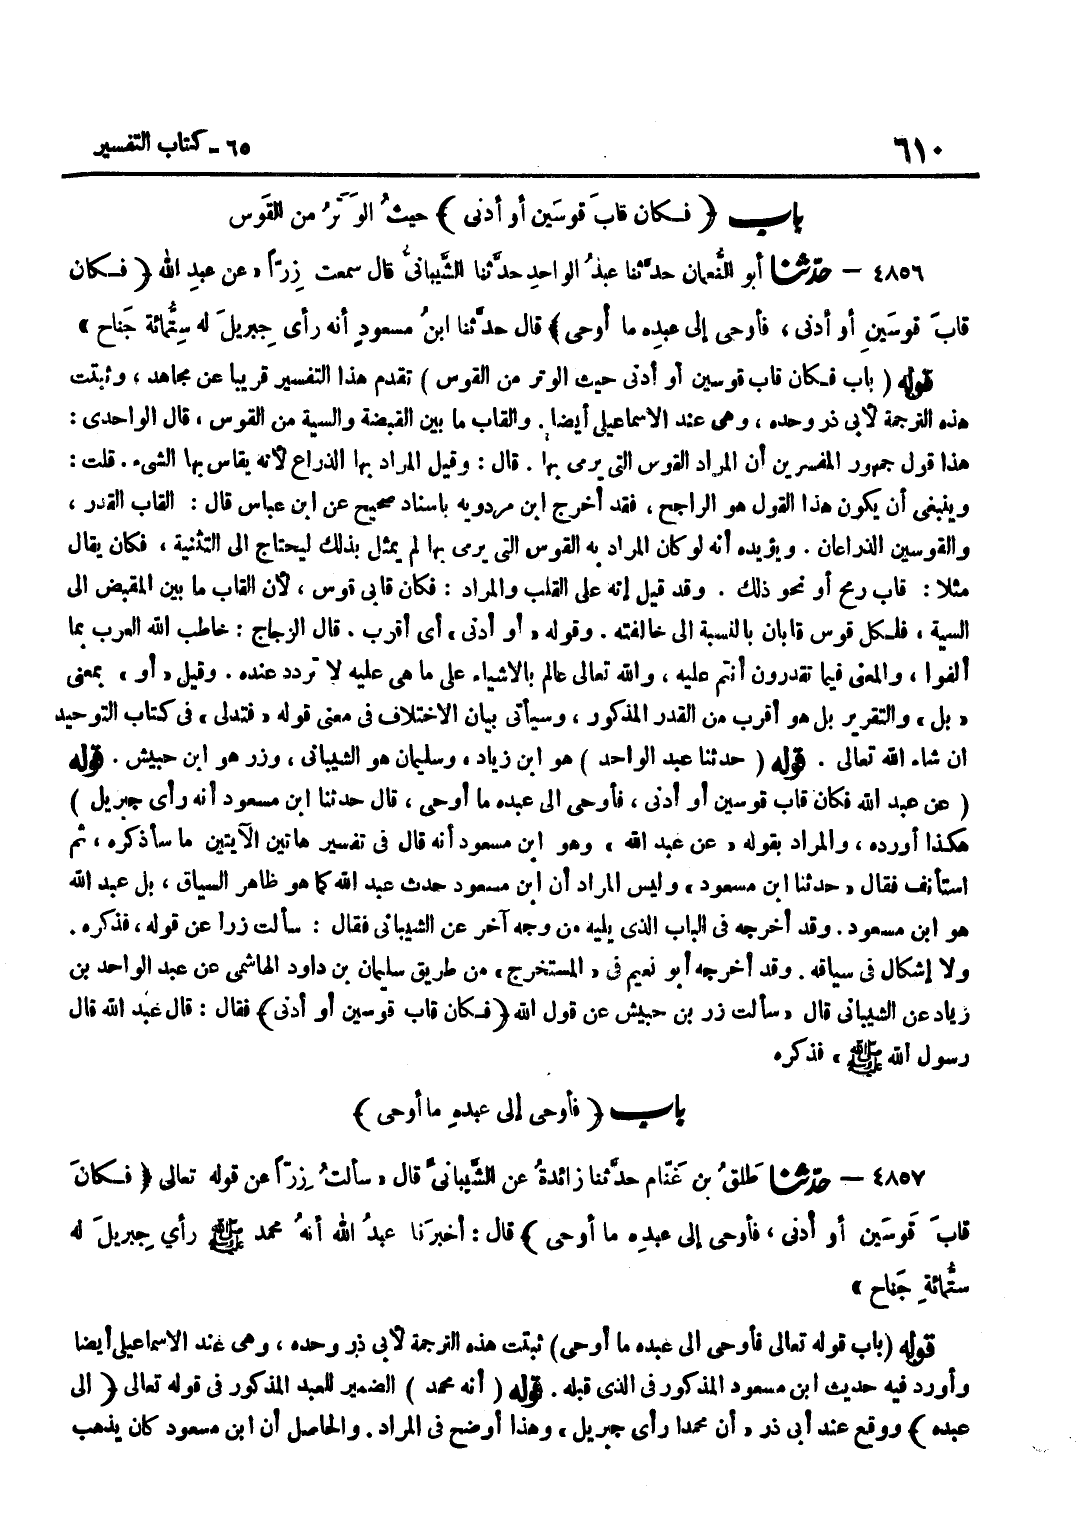 ٦١٠ ٦٥ - كتاب التفسير
باب ﴿ فكان قابَ قوسَين أو أدنى ﴾ حيثُ الوَتَرُ من القَوس
٤٨٥٦ - حدّثنا أبو النُّعمان حدَّثنا عبدُ الواحدِ حدَّثنا الشَّيبانىُّ قال سمعت زِرّاً « عن عبدِ الله ﴿ فكان
قابَ قوسَينِ أو أدنى ، فأوحى إلى عبدِه ما أوحى﴾ قال حدَّثنا ابنُ مسعودٍ أنه رأى جِبريلَ له سِتُّمائة جَناح »
قوله ( باب فكان قاب قوسين أو أدنى حيث الوتر من القوس ) تقدم هذا التفسير قريبا عن مجاهد ، وثبتت
هذه الترجمة لأبى ذر وحده ، وهى عند الاسماعيلى أيضا . والقاب ما بين القبضة والسية من القوس ، قال الواحدى :
هذا قول جمهور المفسرين أن المراد القوس التى يرمى بها . قال : وقيل المراد بها الذراع لأنه يقاس بها الشىء . قلت :
وينبغى أن يكون هذا القول هو الراجح ، فقد أخرج ابن مردويه باسناد صحيح عن ابن عباس قال : القاب القدر ،
والقوسين الذراعان . ويؤيده أنه لو كان المراد به القوس التى يرمى بها لم يمثل بذلك ليحتاج الى التثنية ، فكان يقال
مثلا : قاب رمح أو نحو ذلك . وقد قيل إنه على القلب والمراد : فكان قابى قوس ، لأن القاب ما بين المقبض الى
السية ، فلكل قوس قابان بالنسبة الى خالفته . وقوله « أو أدنى » أى أقرب . قال الزجاج : خاطب الله العرب بما
ألفوا ، والمعنى فيما تقدرون أنتم عليه ، والله تعالى عالم بالاشياء على ما هى عليه لا تردد عنده . وقيل « أو » بمعنى
« بل » والتقرير بل هو أقرب من القدر المذكور ، وسيأتى بيان الاختلاف فى معنى قوله « فتدلى » فى كتاب التوحيد
ان شاء الله تعالى . قوله ( حدثنا عبد الواحد ) هو ابن زياد ، وسليمان هو الشيبانى ، وزر هو ابن حبيش . قوله
( عن عبد الله فكان قاب قوسين أو أدنى ، فأوحى الى عبده ما أوحى ، قال حدثنا ابن مسعود أنه رأى جبريل )
هكذا أورده ، والمراد بقوله « عن عبد الله » وهو ابن مسعود أنه قال فى تفسير هاتين الآيتين ما سأذكره ، ثم
استأنف فقال « حدثنا ابن مسعود » وليس المراد أن ابن مسعود حدث عبد الله كما هو ظاهر السياق ، بل عبد الله
هو ابن مسعود . وقد أخرجه فى الباب الذى يليه من وجه آخر عن الشيبانى فقال : سألت زرا عن قوله ، فذكره .
ولا إشكال فى سياقه . وقد أخرجه أبو نعيم فى « المستخرج » من طريق سليمان بن داود الهاشمى عن عبد الواحد بن
زياد عن الشيبانى قال « سألت زر بن حبيش عن قول الله ﴿ فكان قاب قوسين أو أدنى﴾ فقال : قال عبد الله قال
رسول الله ﷺ » فذكره
باب ﴿ فأوحى إلى عبدهِ ما أوحى ﴾
٤٨٥٧ - حدّثنا طَلقُ بن غَنّام حدَّثنا زائدةُ عن الشَّيبانىِّ قال « سألتُ زِرّاً عن قوله تعالى ﴿ فكانَ
قابَ قَوسَين أو أدنى ، فأوحى إلى عبدِه ما أوحى ﴾ قال : أخبرَنا عبدُ الله أنهُ محمد ﷺ رأي جِبريلَ له
ستُّمائةِ جَناح »
قوله (باب قوله تعالى فأوحى الى عبده ما أوحى) ثبتت هذه الترجمة لأبى ذر وحده ، وهى عند الاسماعيلى أيضا
وأورد فيه حديث ابن مسعود المذكور فى الذى قبله . قوله ( أنه محمد ) الضمير للعبد المذكور فى قوله تعالى ﴿ الى
عبده ﴾ ووقع عند أبى ذر « أن محمدا رأى جبريل » وهذا أوضح فى المراد . والحاصل أن ابن مسعود كان يذهب